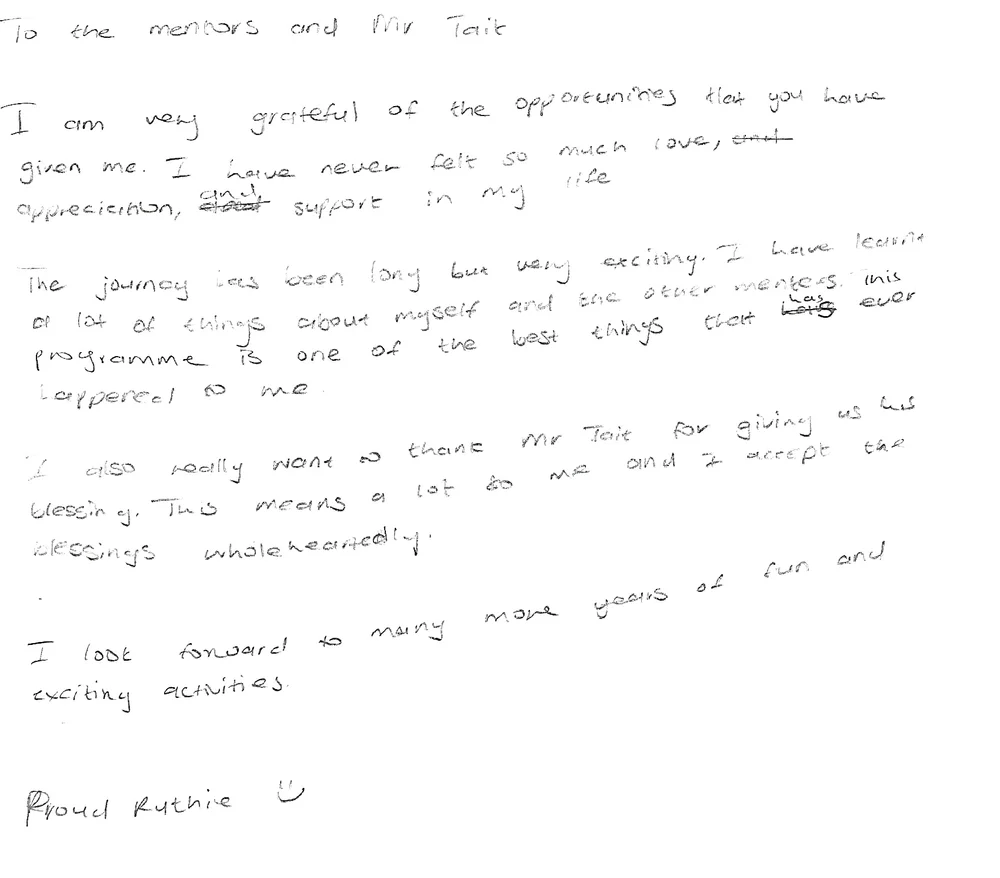 To the mentors and Mr Tait
I am very grateful of the opportunities that you have
given me. I have never felt so much love, and
appreciation, and support in my life
The journey has been long but very exciting. I have learnt
a lot of things about myself and the other menters. This
programme is one of the best things that has ever
happened to me.
I also really want to thank Mr Tait for giving us his
blessing. This means a lot to me and I accept the
blessings wholeheartedly.
I look forward to many more years of fun and
exciting activities.
Proud Ruthie